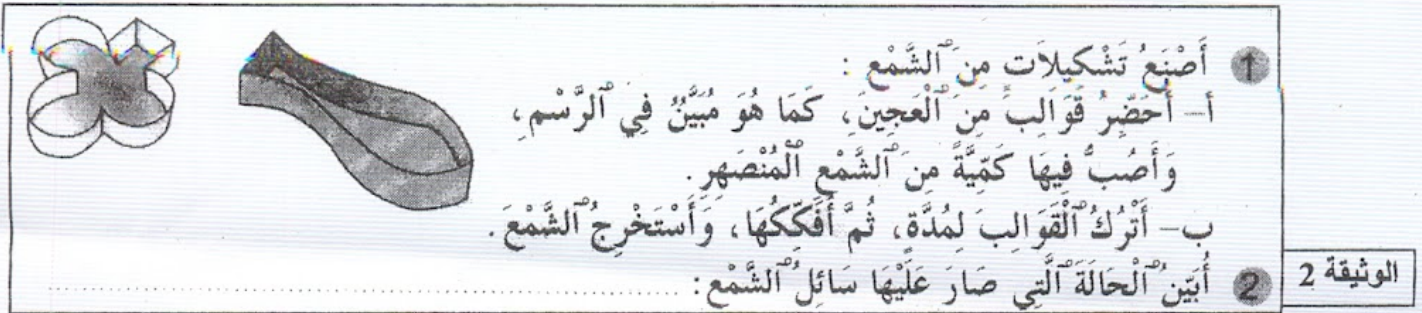 1 أَصْنَعُ تَشْكِيلَاتٍ مِنَ ٱلشَّمْعِ :
أ– أُحَضِّرُ قَوَالِبَ مِنَ ٱلْعَجِينِ، كَمَا هُوَ مُبَيَّنٌ فِي ٱلرَّسْمِ،
وَأَصُبُّ فِيهَا كَمِّيَّةً مِنَ ٱلشَّمْعِ ٱلْمُنْصَهِرِ.
ب– أَتْرُكُ ٱلْقَوَالِبَ لِمُدَّةٍ، ثُمَّ أُفَكِّكُهَا، وَأَسْتَخْرِجُ ٱلشَّمْعَ.
2 أُبَيِّنُ ٱلْحَالَةَ ٱلَّتِي صَارَ عَلَيْهَا سَائِلُ ٱلشَّمْعِ: ..............................
الوثيقة 2